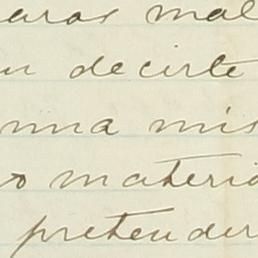 aras mal
n decirte
una mis
o materia
pretender